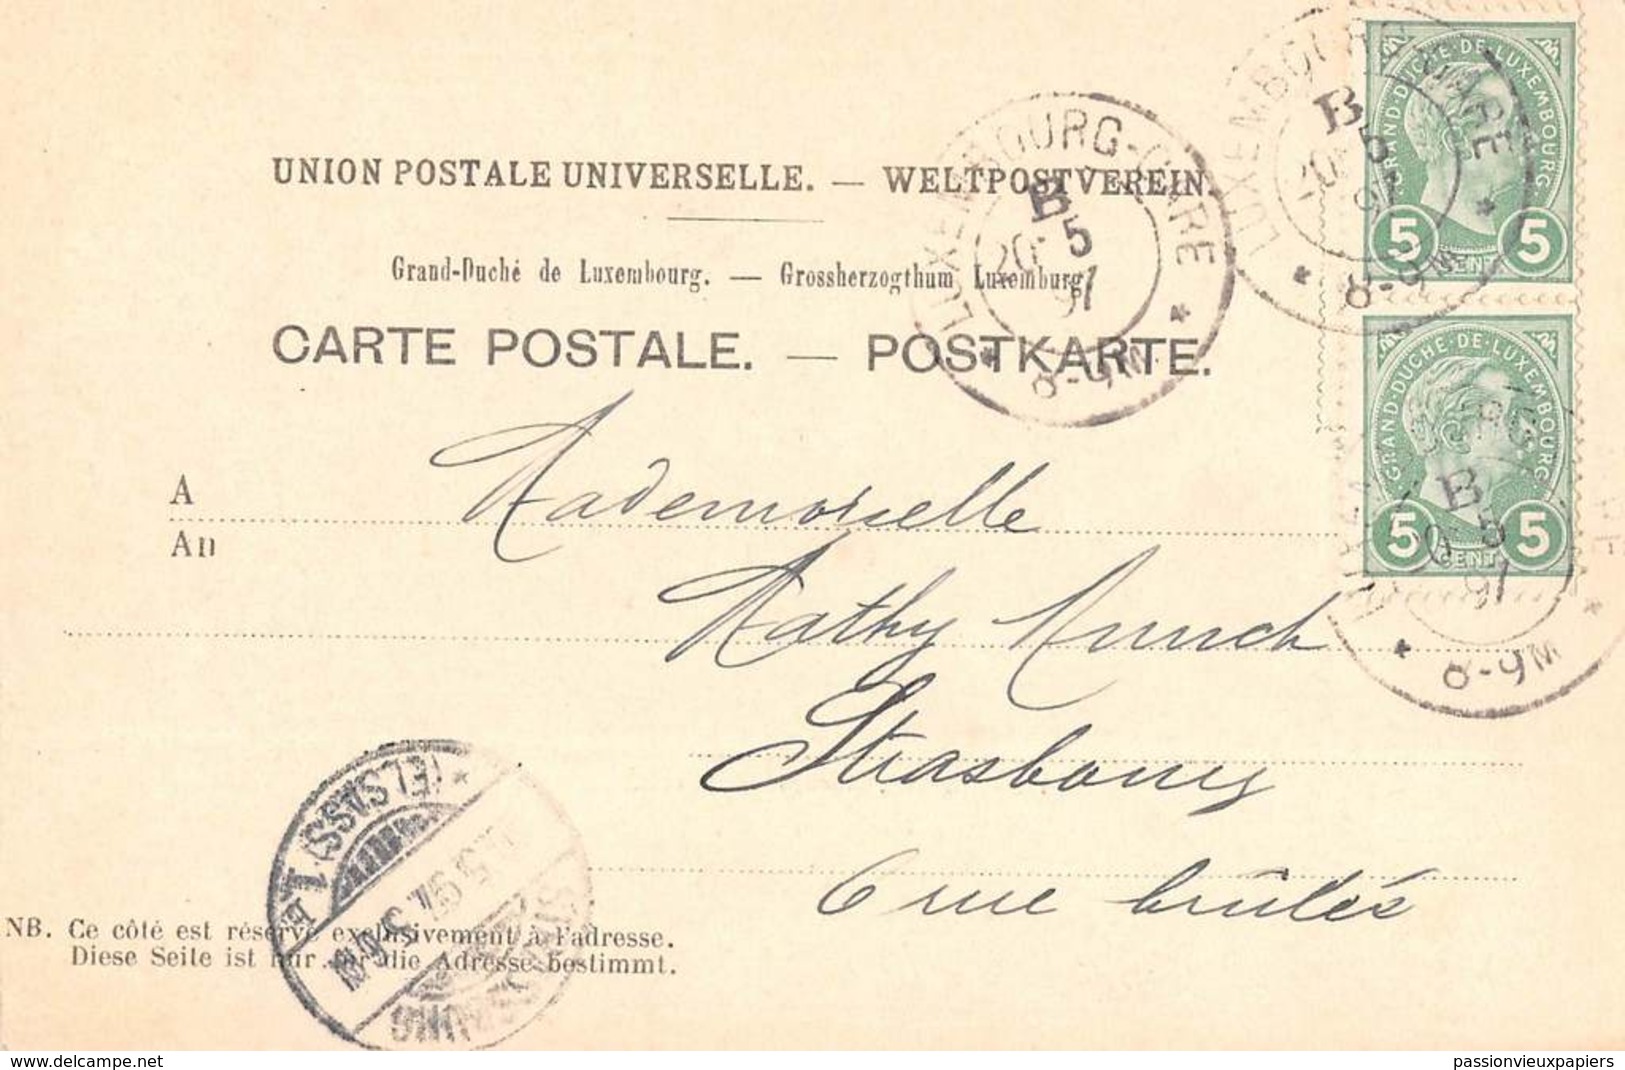 UNION POSTALE UNIVERSELLE. — WELTPOSTVEREIN.
Grand-Duché de Luxembourg. — Grossherzogthum Luxemburg
CARTE POSTALE. — POSTKARTE.
LUXEMBOURG-GARE
B
5
20
97
8-9M
LUXEMBOURG-GARE
B
5
20
97
8-9M
GRAND-DUCHÉ·DE·LUXEMBOURG
5 CENT 5
GRAND-DUCHÉ·DE·LUXEMBOURG
5 CENT 5
B
5
97
8-9M
A
An
Mademoiselle
Mathy Munch
Strasbourg
6 rue brûlée
(ELSASS)
NB. Ce côté est réservé exclusivement à l'adresse.
Diese Seite ist nur für die Adresse bestimmt.
www.delcampe.net
passionvieuxpapiers